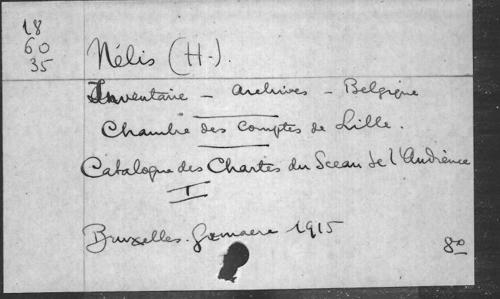 18
60
35
Nélis (H.).
Inventaire - Archives - Belgique
Chambre des Comptes de Lille.
Catalogue des Chartes du Sceau de l'Audience
I
Bruxelles. Goemaere 1915
8º